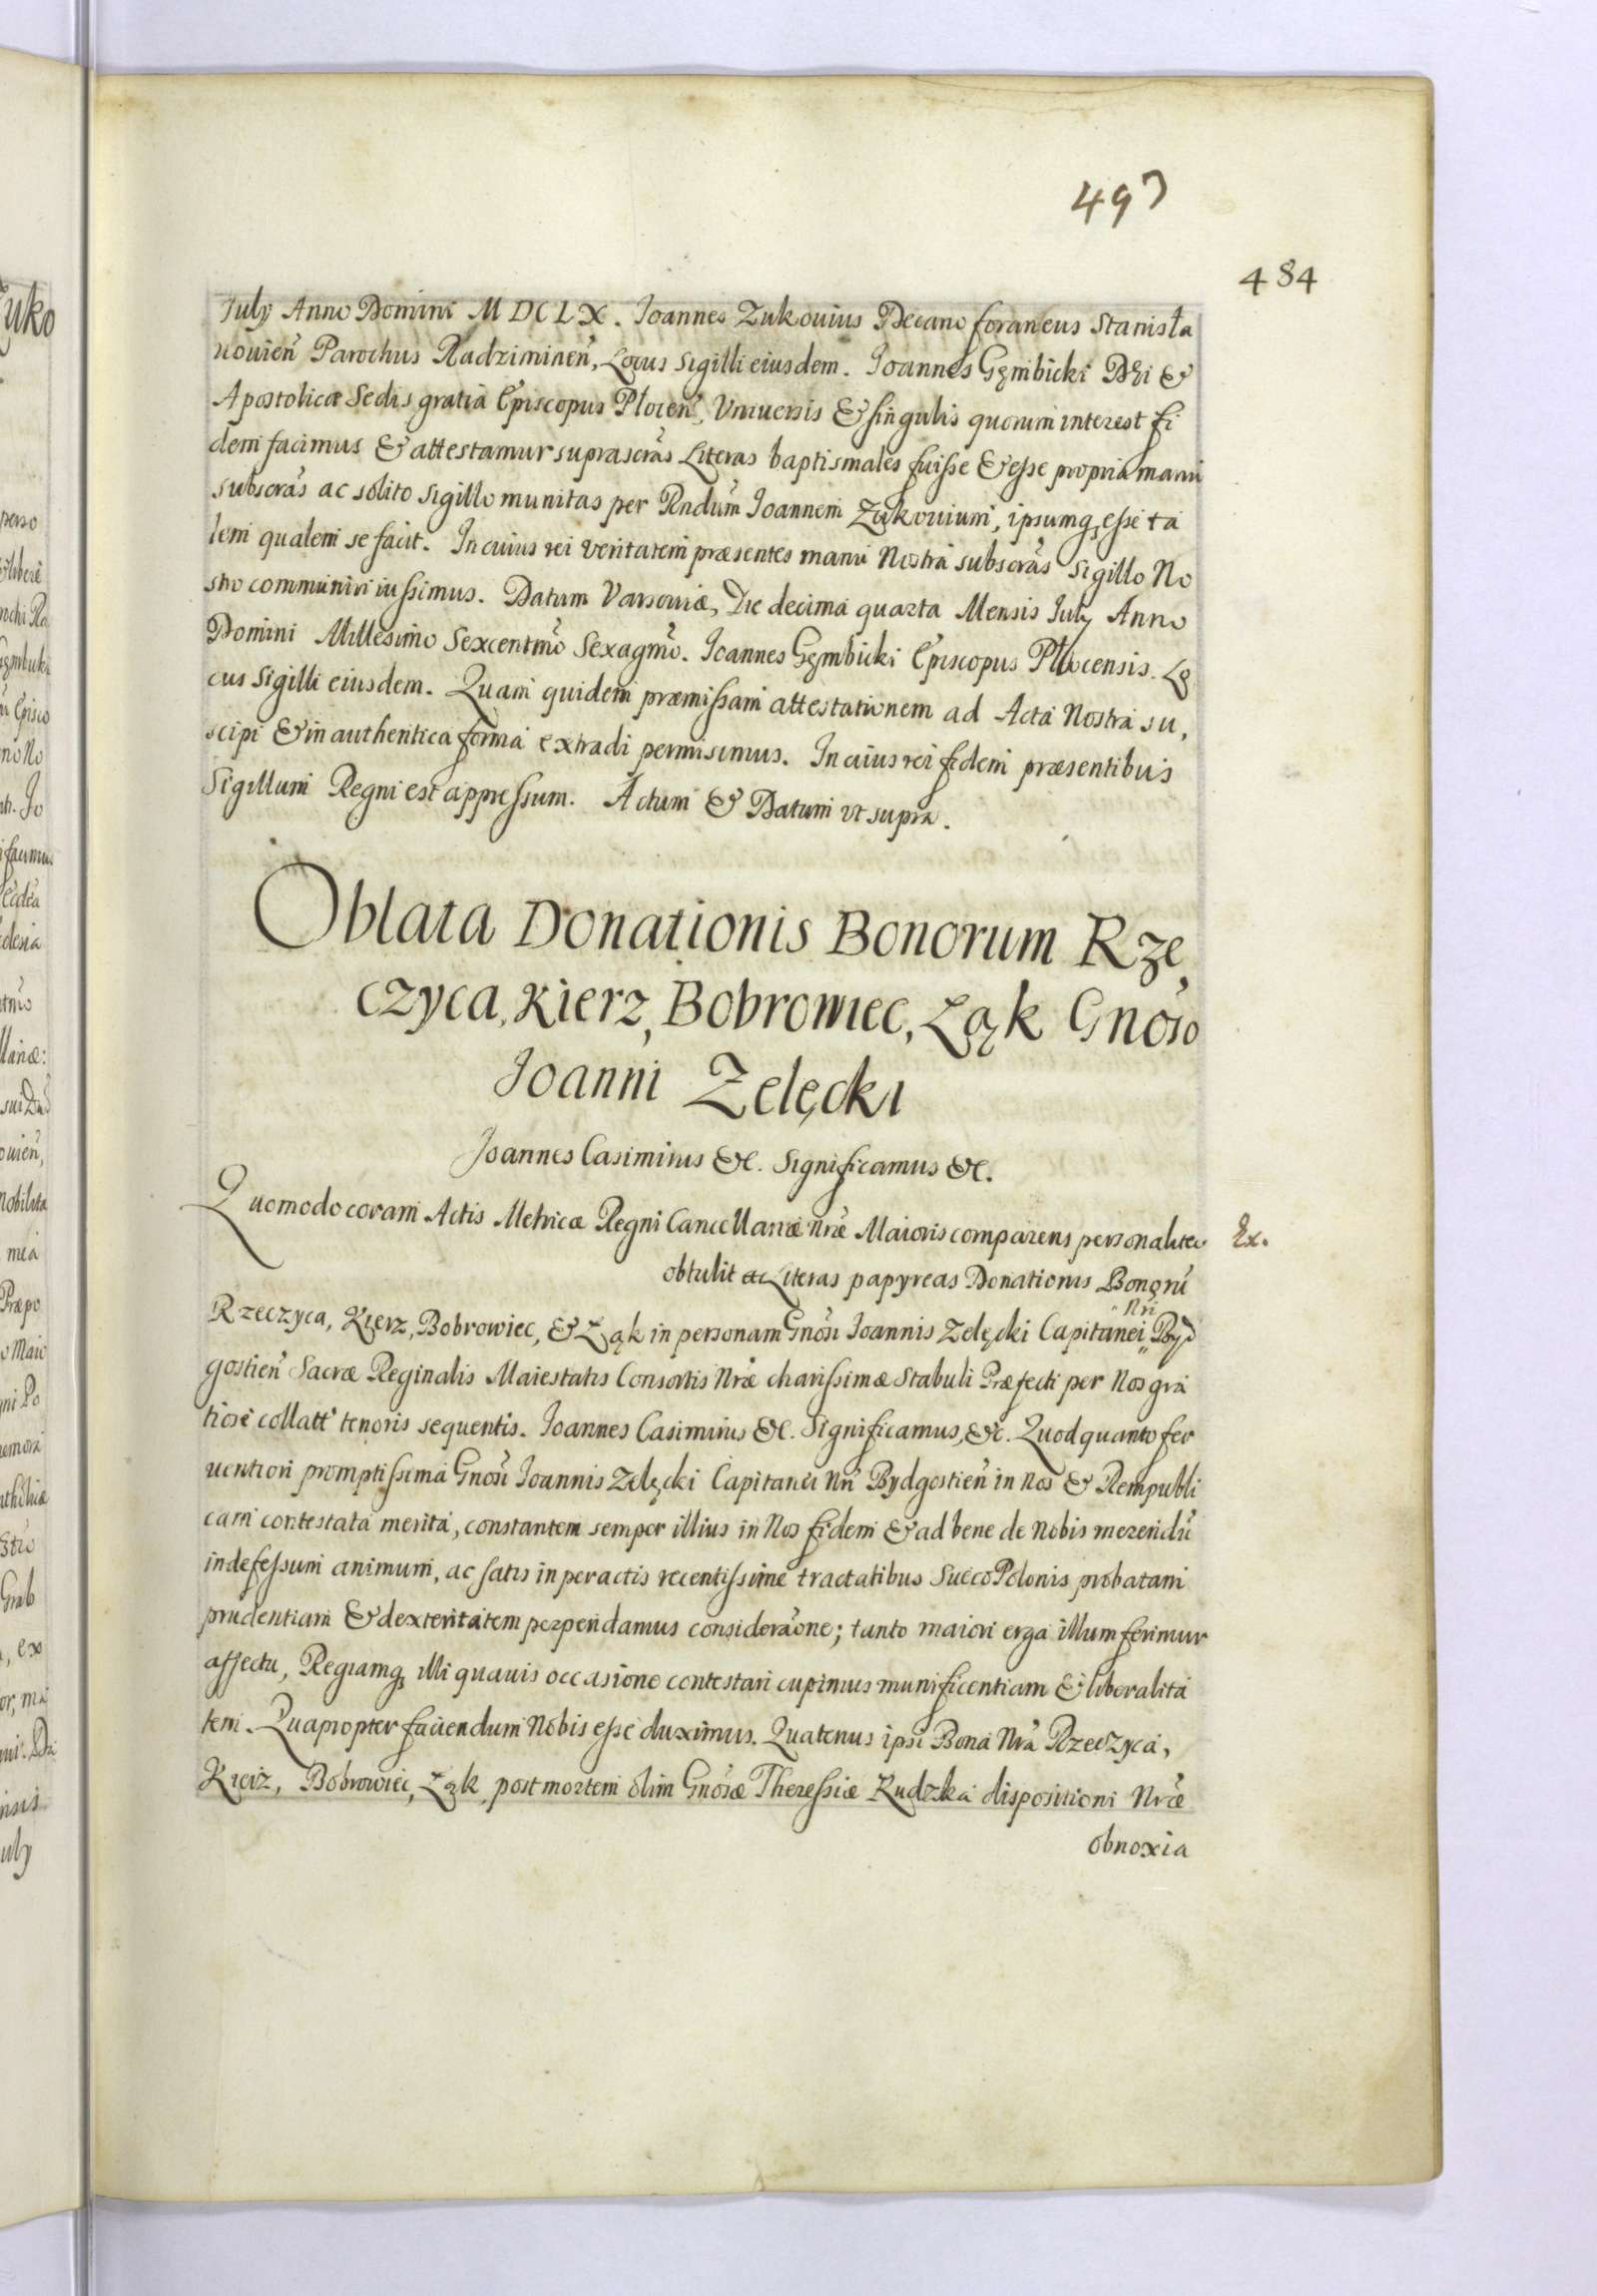 497
484
July Anno Domini MDCLX. Ioannes Zukouius Decano foraneus Stanisła
nouień Parochus Radziminień, Locus Sigilli eiusdem. Ioannes Gęmbicki Dei &
Apostolicæ Sedis gratia Episcopus Płoceń, Vniuersis & singulis quorum interest fi
dem facimus & attestamur suprascrãs Literas baptismales fuisse & esse propria manu
subscrãs ac solito sigillo munitas per Rndũm Ioannem Zukouium, ipsumq esse ta
lem qualem se facit. In cuius rei veritatem præsentes manu Nostra subscrãs Sigillo No
stro communiri iussimus. Datum Varsouiæ, Die decima quarta Mensis July Anno
Domini Millesimo Sexcentmõ Sexagmõ. Ioannes Gęmbicki Episcopus Płocensis. Lo
cus Sigilli eiusdem. Quam quidem præmissam attestationem ad Acta Nostra su,
scipi & in authentica forma extradi permisimus. In cuius rei fidem præsentibus
Sigillum Regni est appressum. Actum & Datum vt supra.
Oblata Donationis Bonorum Rze,
czyca, Kierz, Bobrowiec, Łąk Gnoso
Ioanni Zelęcki
Ioannes Casimirus &c. Significamus &c.
Quomodo coram Actis Metricæ Regni Cancellariæ Nræ Maioris comparens personaliter
Ex.
obtulit Literas papyreas Donationis Bonorũ
Rzeczyca, Kierz, Bobrowiec, & Łąk in personam Gnõsi Ioannis Zelęcki Capitanei Nri Byd
gostień Sacræ Reginalis Maiestatis Consortis Nræ charissimæ Stabuli Præfecti per Nos gra
tiose collatt tenoris sequentis. Ioannes Casimirus &c. Significamus, &c. Quod quanto fer
uentiori promptissima Gnõsi Ioannis Zelęcki Capitanei Nri Bydgostień in Nos & Rempubli
cam contestata merita, constantem semper illius in Nos fidem & ad bene de Nobis merendũ
indefessum animum, ac satis in peractis recentissime tractatibus Sueco Polonis probatam
prudentiam & dexteritatem perpendamus considerãone; tanto maiori erga illum ferimur
affectu, Regiamq illi quauis occasione contestari cupimus munificentiam & liberalita
tem. Quapropter faciendum Nobis esse duximus. Quatenus ipsi Bona Nra Rzeczyca,
Kierz, Bobrowiec, Łąk, post mortem olim Gnõsæ Theressiæ Rudzka dispositioni Nræ
obnoxia